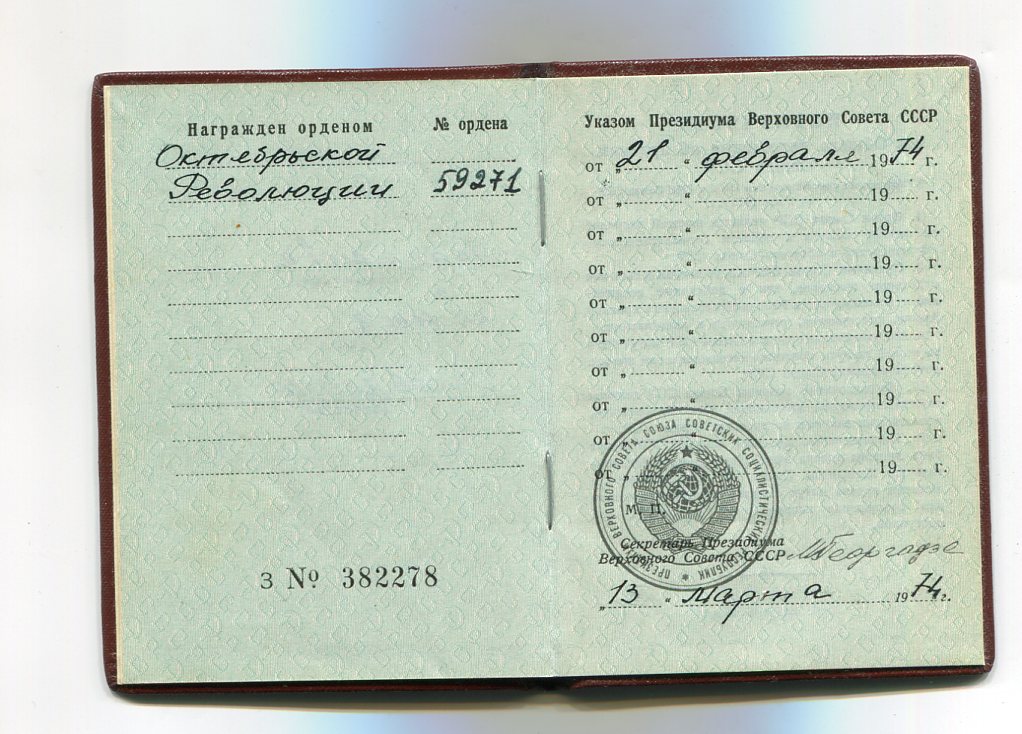 Награжден орденом № ордена
Октябрьской
Революции 59271
З № 382278
Указом Президиума Верховного Совета СССР
от „ 21 “ февраля 1974 г.
от „ “ 19 г.
от „ “ 19 г.
от „ “ 19 г.
от „ “ 19 г.
от „ “ 19 г.
от „ “ 19 г.
от „ “ 19 г.
от „ “ 19 г.
от „ 19 г.
ПРЕЗИДИУМ ВЕРХОВНОГО СОВЕТА СОЮЗА СОВЕТСКИХ СОЦИАЛИСТИЧЕСКИХ РЕСПУБЛИК
М. П.
Секретарь Президиума
Верховного Совета СССР МГеоргадзе
„ 13 “ Марта 1974 г.